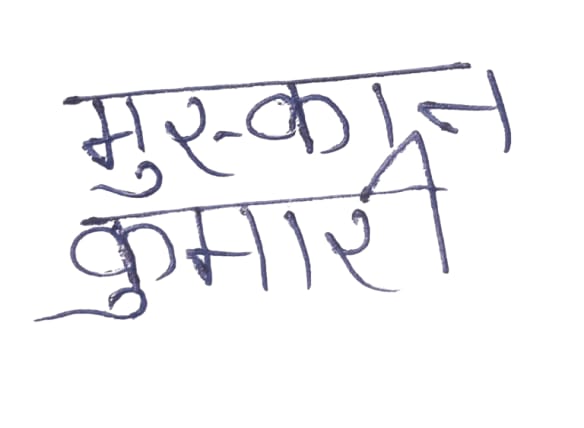 मुस्कान
कुमारी